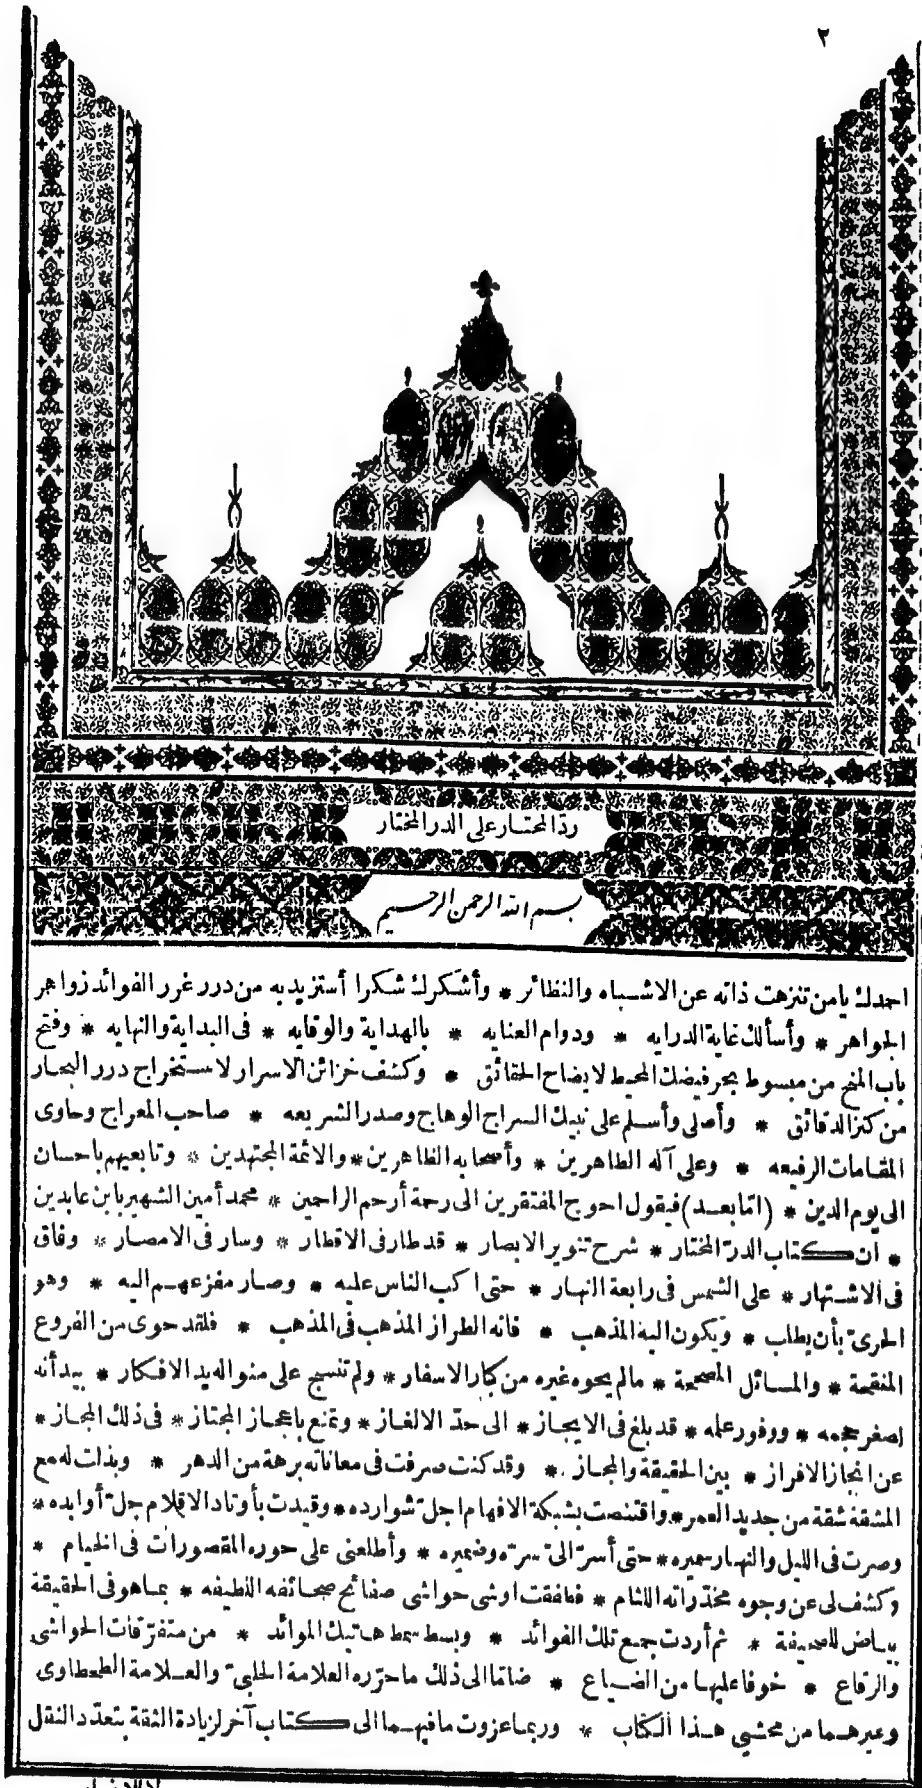 ٢
ردّ المحتار على الدر المختار
بسم الله الرحمن الرحيم
احمدك يا من تنزهت ذاته عن الاشباه والنظائر * وأشكرك شكرا أستزيد به من درر غرر الفوائد زواهر
الجواهر * وأسألك غاية الدرايه * ودوام العنايه * بالهداية والوقايه * فى البداية والنهايه * وفتح
باب المنح من مبسوط بحر فيضك المحيط لايضاح الحقائق * وكشف خزائن الاسرار لاستخراج درر البحار
من كنز الدقائق * وأصلى وأسلم على نبيك السراج الوهاج وصدر الشريعه * صاحب المعراج وحاوى
المقامات الرفيعه * وعلى آله الطاهرين * وأصحابه الظاهرين * والائمة المجتهدين * وتابعيهم باحسان
الى يوم الدين * (امّا بعد) فيقول احوج المفتقرين الى رحمة أرحم الراحمين * محمد أمين الشهير بابن عابدين
* ان كتاب الدرّ المختار * شرح تنوير الابصار * قد طار فى الاقطار * وسار فى الامصار * وفاق
فى الاشتهار * على الشمس فى رابعة النهار * حتى اكب الناس عليه * وصار مفزعهم اليه * وهو
الحرىّ بأن يطلب * ويكون اليه المذهب * فانه الطراز المذهب فى المذهب * فلقد حوى من الفروع
المنقحة * والمسائل المصححة * ما لم يحوه غيره من كبار الاسفار * ولم تنسج على منواله يد الافكار * بيد أنه
لصغر حجمه * ووفور علمه * قد بلغ فى الايجاز * الى حدّ الالغاز * وتمنع باعجاز المجتاز * فى ذلك المجاز *
عن انجاز الافراز * بين الحقيقة والمجاز * وقد كنت صرفت فى معاناته برهة من الدهر * وبذلت له مع
المشقة شقة من جديد العمر * واقتنصت بشبكة الافهام اجلّ شوارده * وقيدت بأوتاد الاقلام جلّ أوابده *
وصرت فى الليل والنهار سميره * حتى أسرّ الىّ سرّه وضميره * وأطلعنى على حوره المقصورات فى الخيام *
وكشف لى عن وجوه مخدّراته اللثام * فطفقت اوشى حواشى صفائح صحائفه اللطيفه * بما هو فى الحقيقة
بياض للصحيفة * ثم أردت جمع تلك الفوائد * وبسط سمط هاتيك الموائد * من متفرّقات الحواشى
والرقاع * خوفا عليها من الضياع * ضامّا الى ذلك ما حرّره العلامة الحلبىّ والعلامة الطحطاوى
وغيرهما من محشيى هذا الكتاب * وربما عزوت ما فيهما الى كتاب آخر لزيادة الثقة بتعدّد النقل